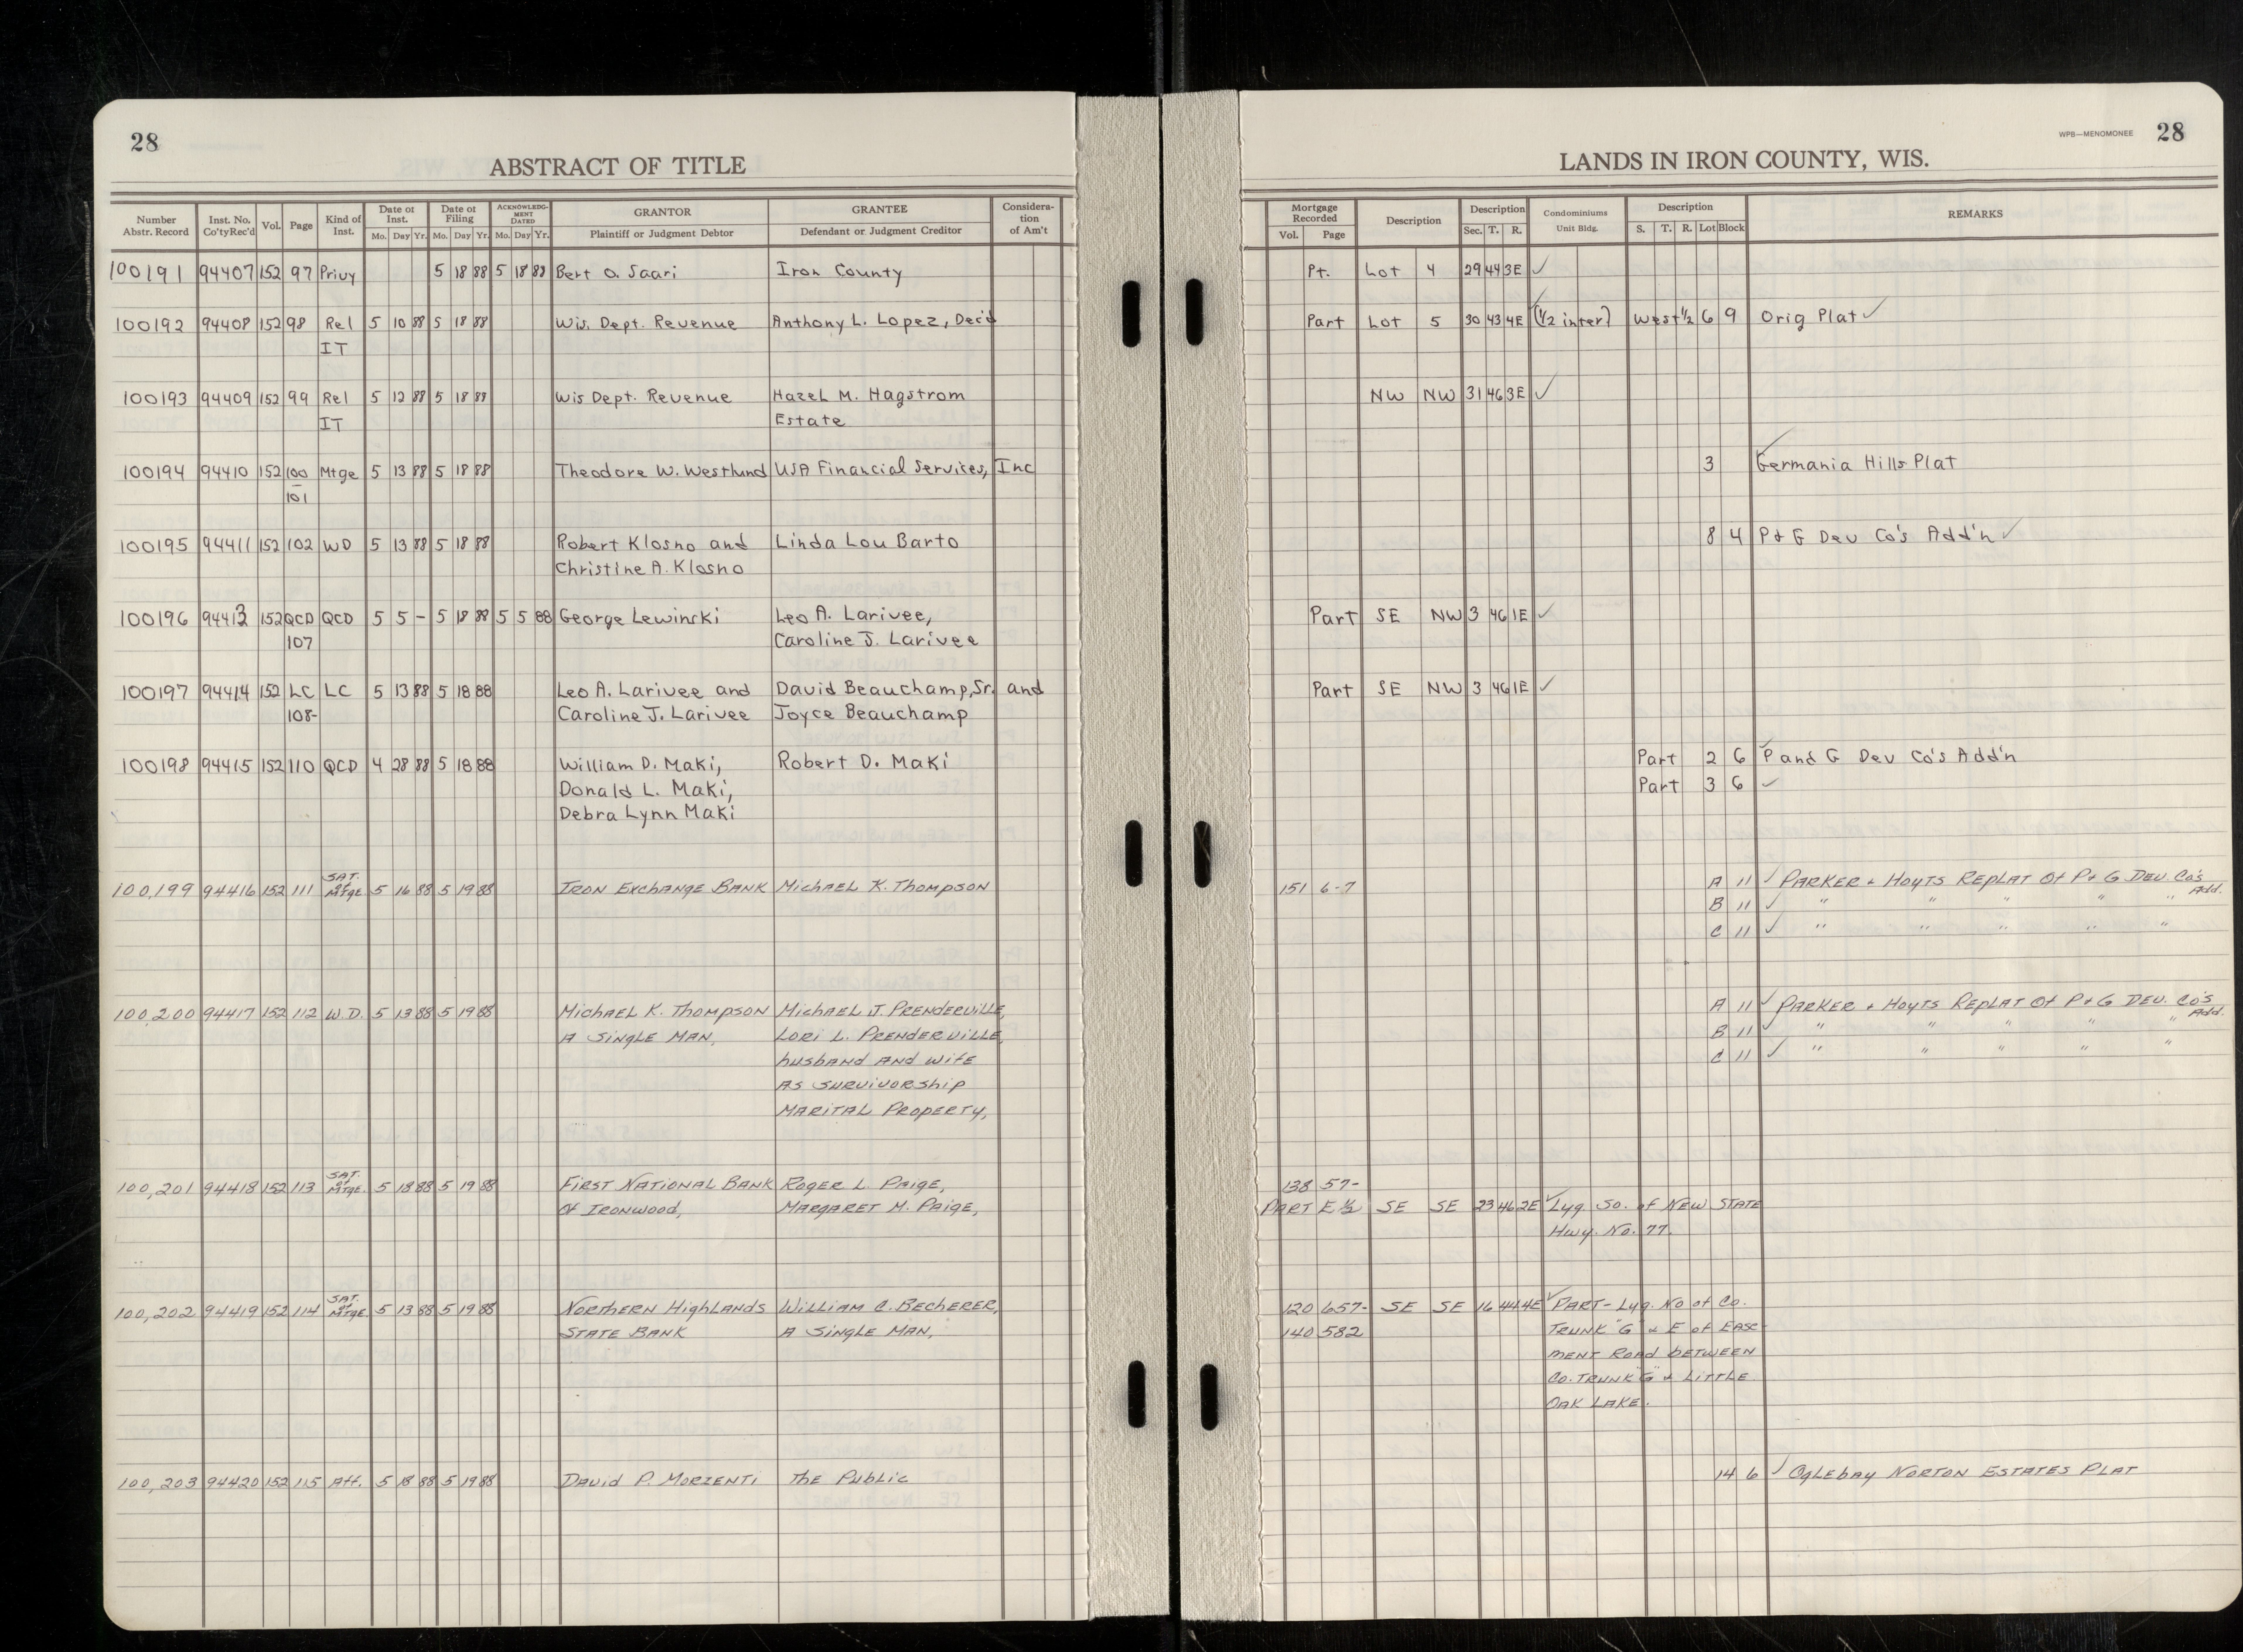 28
ABSTRACT OF TITLE
Number Abstr. Record Inst. No. Co'ty Rec'd Vol. Page Kind of Inst. Date of Inst. Mo. Day Yr. Date of Filing Mo. Day Yr. ACKNOWLEDGMENT DATED Mo. Day Yr. GRANTOR Plaintiff or Judgment Debtor GRANTEE Defendant or Judgment Creditor Consideration of Am't
100191 94407 152 97 Privy 5 18 88 5 18 88 Bert O. Saari Iron County
100192 94408 152 98 Rel 5 10 88 5 18 88 Wis. Dept. Revenue Anthony L. Lopez, Dec'd
IT
100193 94409 152 99 Rel 5 12 88 5 18 88 Wis Dept. Revenue Hazel M. Hagstrom
IT Estate
100194 94410 152 100 Mtge 5 13 88 5 18 88 Theodore W. Westlund USA Financial Services, Inc
101
100195 94411 152 102 WD 5 13 88 5 18 88 Robert Klosno and Linda Lou Barto
Christine A. Klosno
100196 94413 152 QCD QCD 5 5 – 5 18 88 5 5 88 George Lewinski Leo A. Larivee,
107 Caroline J. Larivee
100197 94414 152 LC LC 5 13 88 5 18 88 Leo A. Larivee and David Beauchamp, Sr. and
108- Caroline J. Larivee Joyce Beauchamp
100198 94415 152 110 QCD 4 28 88 5 18 88 William D. Maki, Robert D. Maki
Donald L. Maki,
Debra Lynn Maki
100,199 94416 152 111 SAT. of MTGE. 5 16 88 5 19 88 IRON EXCHANGE BANK MICHAEL K. THOMPSON
100,200 94417 152 112 W.D. 5 13 88 5 19 88 MICHAEL K. THOMPSON MICHAEL J. PRENDERVILLE,
A SINGLE MAN, LORI L. PRENDERVILLE,
husband AND WIFE
AS SURVIVORSHIP
MARITAL PROPERTY,
100,201 94418 152 113 SAT. of MTGE. 5 18 88 5 19 88 FIRST NATIONAL BANK ROGER L. PAIGE,
Of IRONWOOD, MARGARET M. PAIGE,
100,202 94419 152 114 SAT. of MTGE. 5 13 88 5 19 88 NORTHERN HIGHLANDS WILLIAM C. BECHERER,
STATE BANK A SINGLE MAN,
100,203 94420 152 115 Aff. 5 18 88 5 19 88 DAVID P. MORZENTI The PUBLIC
WPB—MENOMONEE 28
LANDS IN IRON COUNTY, WIS.
Mortgage Recorded Vol. Page Description Description Sec. T. R. Condominiums Unit Bldg. Description S. T. R. Lot Block REMARKS
Pt. Lot 4 29 44 3E ✓
Part Lot 5 30 43 4E ✓ (1/2 inter) West 1/2 6 9 Orig Plat ✓
NW NW 31 46 3E ✓
3 Germania Hills Plat
8 4 P & G Dev Co's Add'n ✓
Part SE NW 3 46 1E ✓
Part SE NW 3 46 1E ✓
Part 2 6 P and G Dev Co's Add'n
Part 3 6 ✓
151 6-7 A 11 ✓ PARKER & HOYTS REPLAT Of P & G DEV. Co's Add.
B 11 ✓ " " " " "
C 11 ✓ " " " " "
A 11 ✓ PARKER & HOYTS REPLAT Of P & G DEV. Co's Add.
B 11 ✓ " " " " "
C 11 ✓ " " " " "
138 57-
PART E 1/2 SE SE 23 46 2E ✓ Lyg. So. of NEW STATE
Hwy. No. 77.
120 657- SE SE 16 44 4E ✓ PART - Lyg. No of Co.
140 582 TRUNK "G" & E of EASE
MENT ROAD bETWEEN
Co. TRUNK "G" & LITTLE
OAK LAKE.
14 6 ✓ OGLEbAY NORTON ESTATES PLAT